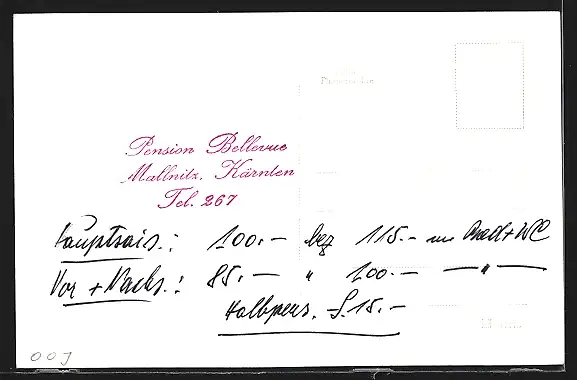 Pension Bellevue
Mallnitz, Kärnten
Tel. 267
Hauptsais.: 100.- bez 115.- m Bad + WC
Vor + Nachs.: 85.- " 100.- — " —
Halbpens. S. 15.-